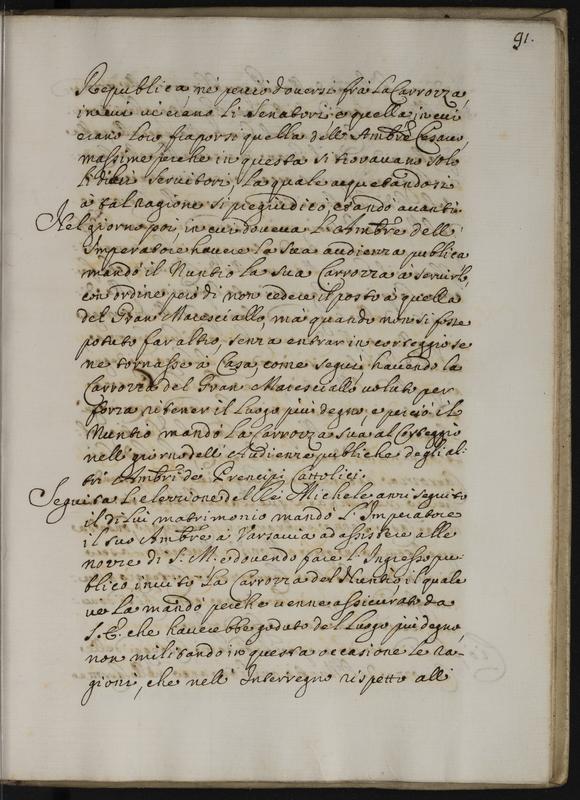 91.
Republica, nè perciò doversi frà la Carrozza,
in cui vi erano li Senatori, e quella, in cui
erano loro fraporse quella dell'Ambre Cesareo,
massime perche in questa si trovavano solo
li di lui servitori, la quale acquetandosi
à tal ragione si pregiudicò esando avanti.
Nel giorno poi, in cui doveva l'Ambre dell'
Imperatore havere la sua audienza publica
mandò il Nuntio la sua Carrozza à servirlo,
con ordine però di non cedere il posto à quella
del Gran Maresciallo, mà quando non si fosse
potuto far altro, senza entrar in corteggio se
ne tornasse à Casa, come seguì, havendo la
Carrozza del Gran Maresciallo voluto per
forza ritener il luogo più degno, e perciò il
Nuntio mandò la Carrozza sua al Corteggio
nell giorno dell'Audienze publiche degli al:
tri Ambri de Prencipi Cattolici.
Seguita l'elezzione del Rè Michele anzi seguito
il di lui matrimonio mandò l'Imperatore
il suo Ambre à Varsavia ad assistere alle
nozze di S. M. e dovendo fare l'Ingresso pu:
blico invitò la Carrozza del Nuntio, il quale
ve la mandò perche venne assicurato da
S. E. che haverebbe goduto del luogo più degno,
non militando in questa occasione le ra:
gioni, che nell'Interregno rispetto alli